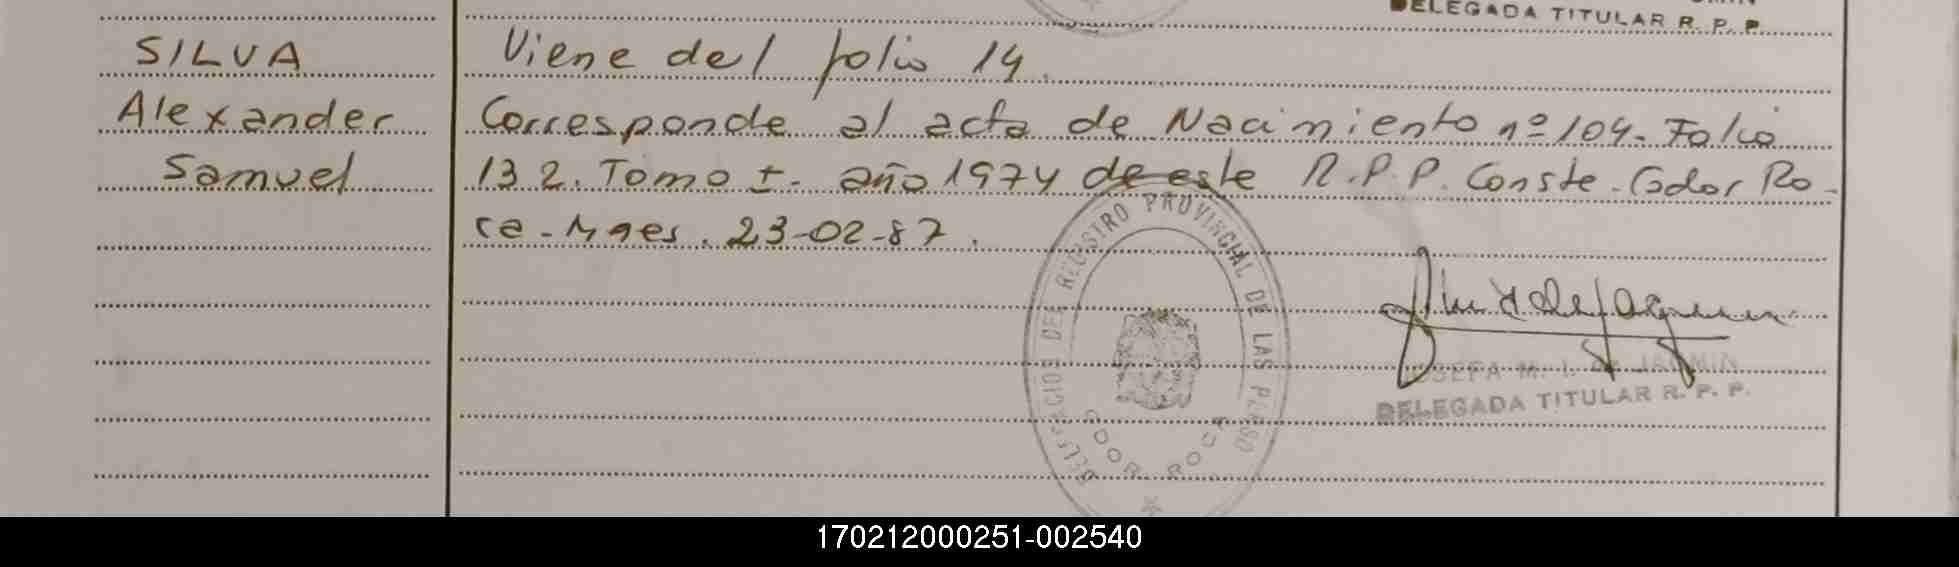 DELEGADA TITULAR R. P. P.
SILVA
Alexander
Samuel
Viene del folio 14.
Corresponde al acta de Nacimiento nº 104. Folio
132. Tomo I. año 1974 de este R.P.P. Conste. Gdor Ro-
ca - Mnes. 23-02-87.
DELEGACION DEL REGISTRO PROVINCIAL DE LAS PERSO
GDOR ROCA
JOSEFA M. I. DE
DELEGADA TITULAR R. P. P.
170212000251-002540